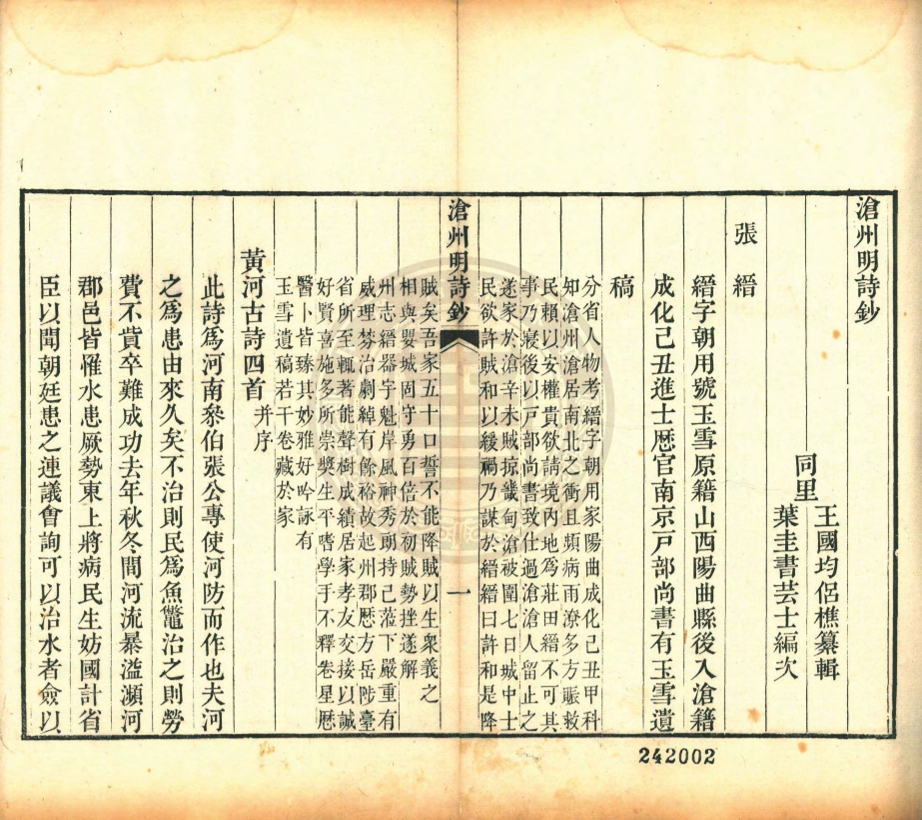 滄州明詩鈔
同里
王國均侶樵纂輯
葉圭書芸士編次
張縉
縉字朝用號玉雪原籍山西陽曲縣後入滄籍
成化己丑進士歷官南京戸部尚書有玉雪遺
稿
分省人物考縉字朝用家陽曲成化己丑甲科
知滄州滄居南北之衝且頻病雨潦多方賑救
民賴以安權貴欲請境內地爲莊田縉不可其
事乃寢後以戸部尚書致仕過滄滄人留止之
遂家於滄辛未賊掠畿甸滄被圍七日城中士
民欲許賊和以緩禍乃謀於縉縉曰許和是降
滄州明詩鈔
一
賊矣吾家五十口誓不能降賊以生衆義之
相與嬰城固守勇百倍於初賊勢挫遂解
州志縉器宇魁岸風神秀頎持己蒞下嚴重有
威理棼治劇綽有餘裕故起州郡歷方岳陟臺
省所至輒著能聲樹成績居家孝友交接以誠
好賢喜施多所崇獎生平嗜學手不釋卷星歷
醫卜皆臻其妙雅好吟詠有
玉雪遺稿若干卷藏於家
黃河古詩四首 并序
此詩爲河南叅伯張公專使河防而作也夫河
之爲患由來久矣不治則民爲魚鼈治之則勞
費不貲卒難成功去年秋冬間河流暴溢瀕河
郡邑皆惟水患厥勢東上將病民生妨國計省
臣以聞朝廷患之連議會詢可以治水者僉以
242002